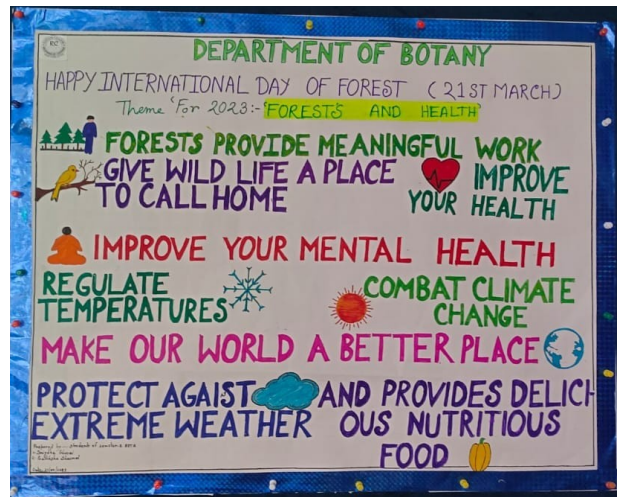 DEPARTMENT OF BOTANY
HAPPY INTERNATIONAL DAY OF FOREST (21ST MARCH)
Theme 'For 2023:- 'FORESTS AND HEALTH'
FORESTS PROVIDE MEANINGFUL WORK
GIVE WILD LIFE A PLACE
TO CALL HOME
IMPROVE
YOUR HEALTH
IMPROVE YOUR MENTAL HEALTH
REGULATE
TEMPERATURES
COMBAT CLIMATE
CHANGE
MAKE OUR WORLD A BETTER PLACE
PROTECT AGAIST
EXTREME WEATHER
AND PROVIDES DELICI-
OUS NUTRITIOUS
FOOD